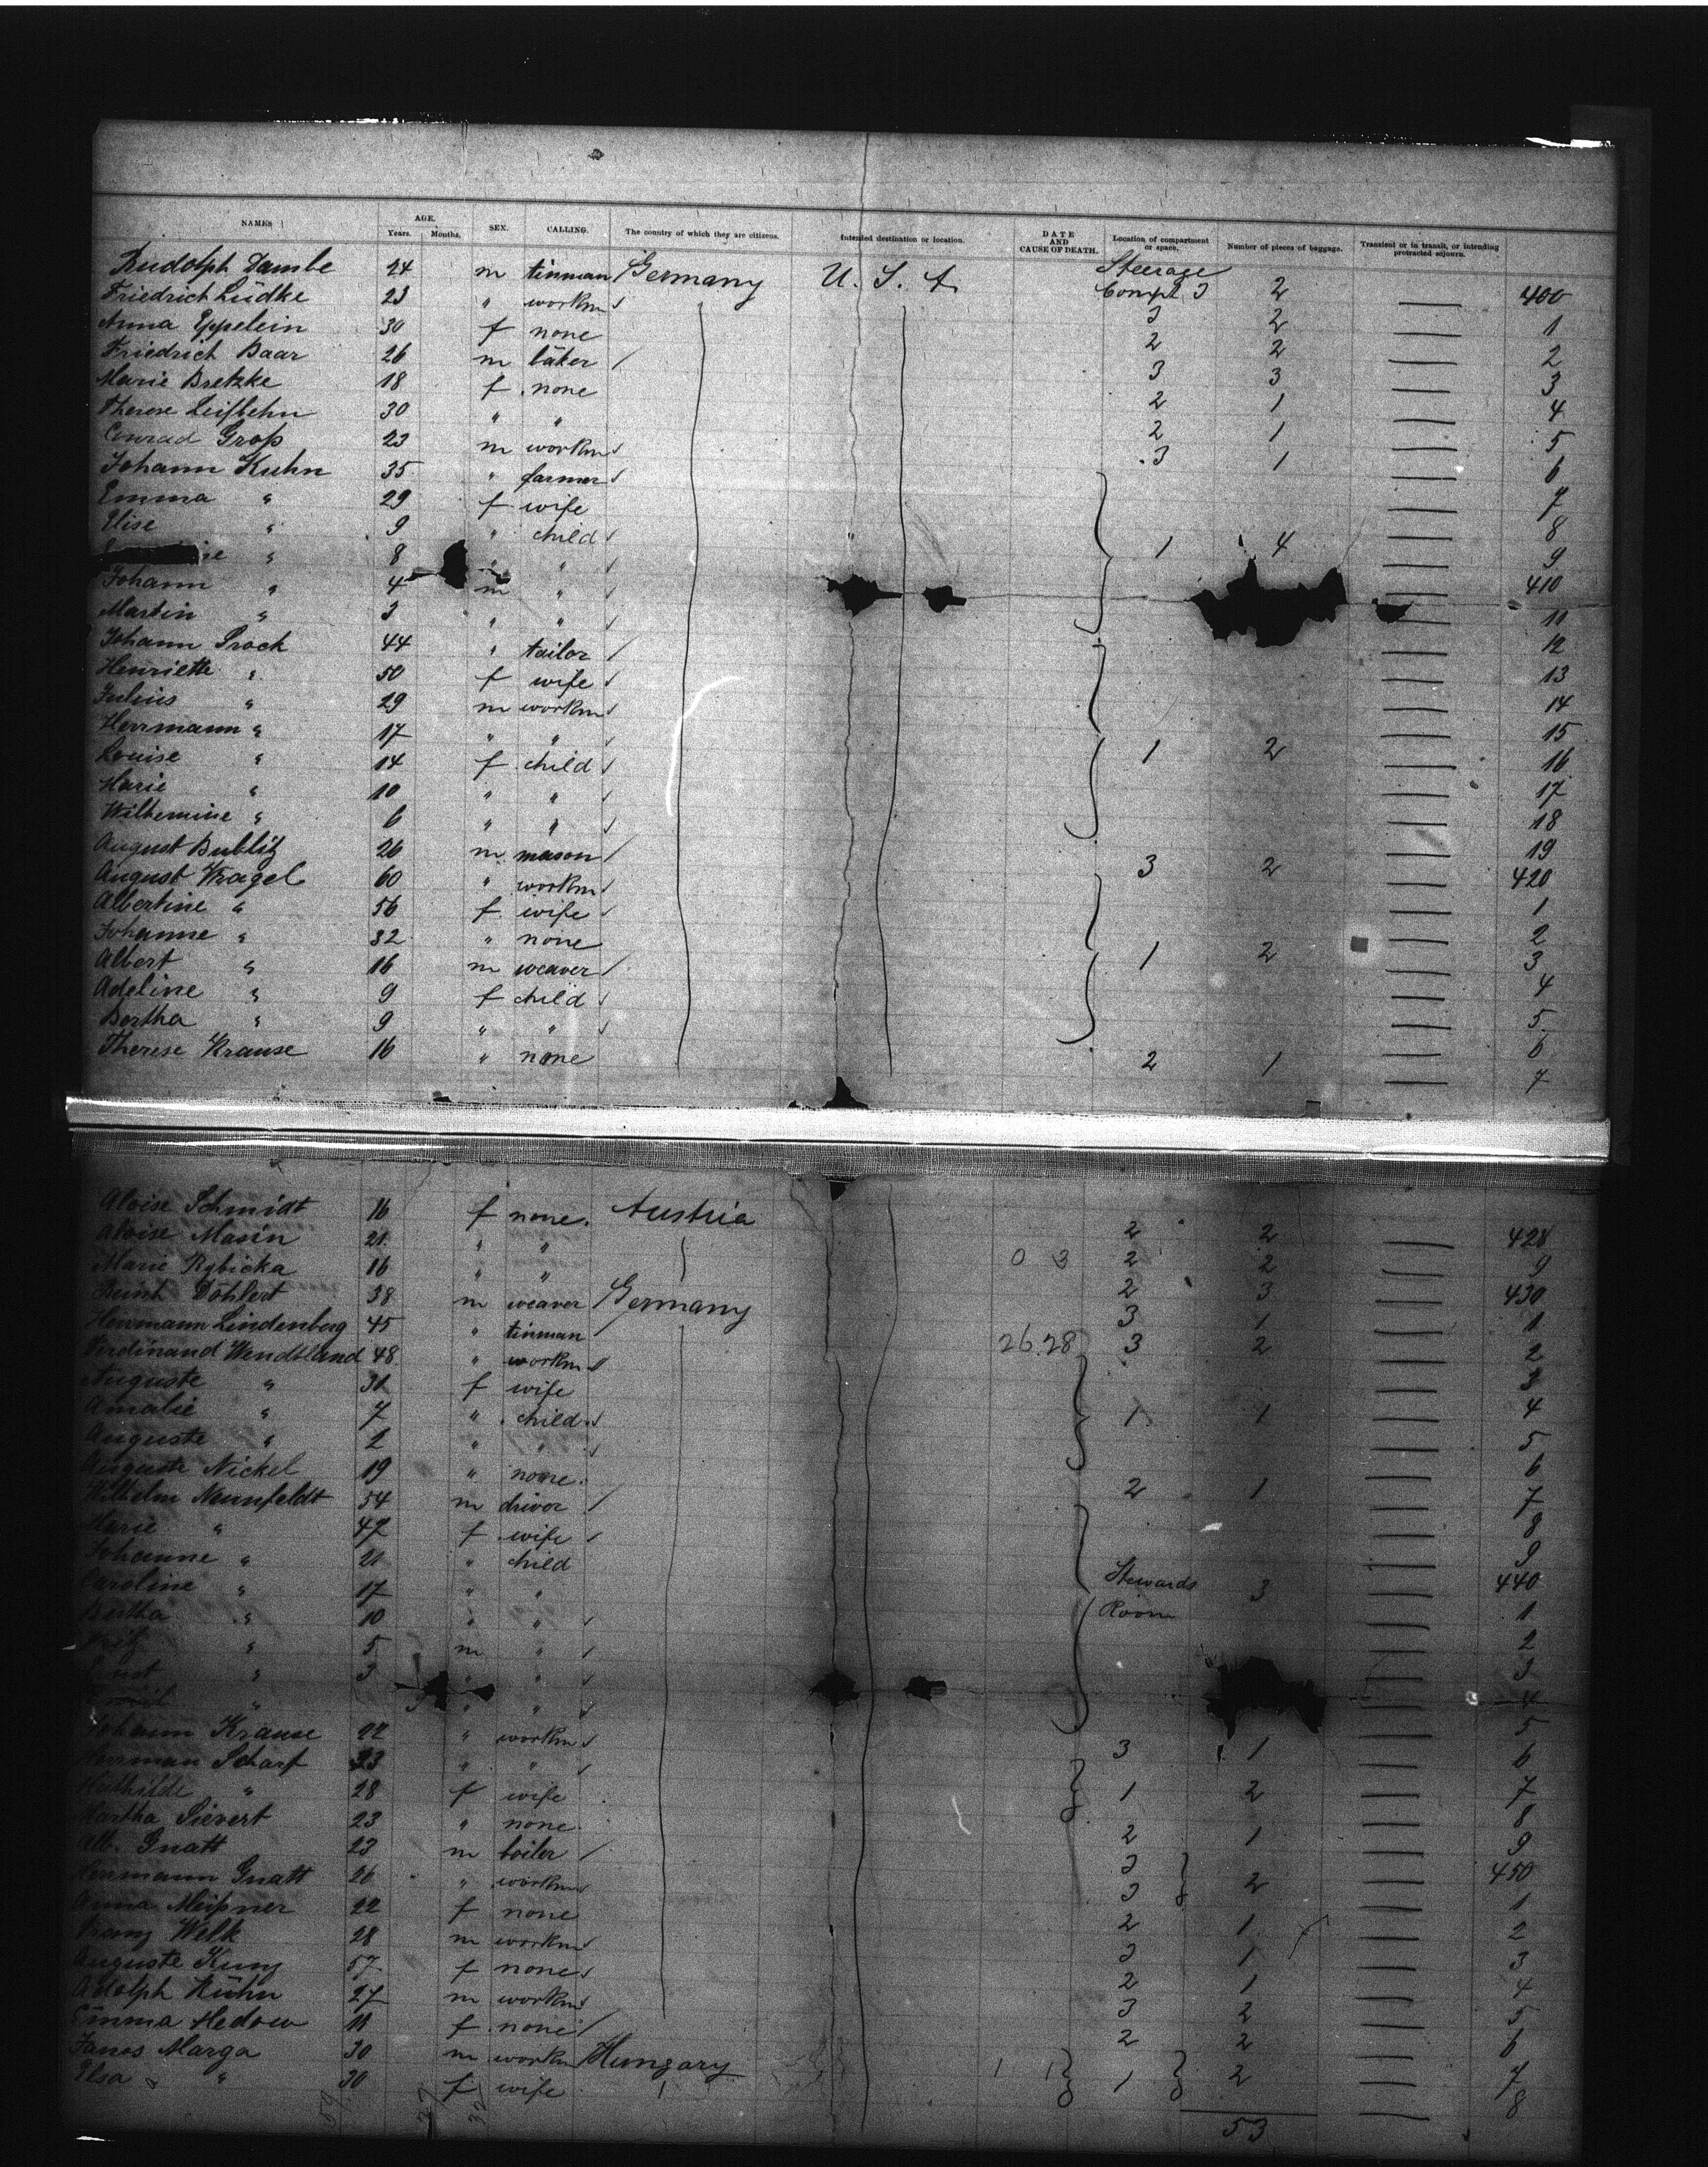 NAMES AGE. Years. Months. SEX. CALLING. The country of which they are citizens. Intended destination or location. DATE AND CAUSE OF DEATH. Location of compartment or space. Number of pieces of baggage. Transient or in transit, or intending protracted sojourn.
Rudolph Dambe 24 m tinman Germany U. S. A. Steerage Compt 3 2 — 400
Friedrich Lüdke 23 " workm 3 2 — 1
Anna Eppelein 30 f none 2 2 — 2
Friedrich Baar 26 m bäker 3 3 — 3
Marie Bretzke 18 f none 2 1 — 4
Therese 30 " " 2 1 — 5
Conrad Groß 23 m workm 3 1 — 6
Johann Kuhn 35 " farmer — 7
Emma " 29 f wife — 8
Elise " 9 " child 1 4 — 9
ie " 8 " " — 410
Johann " 4 m " — 11
Martin " 3 " " — 12
Johann Prock 44 " tailor — 13
Henriette " 50 f wife — 14
Julius " 29 m workm — 15
Herrmann " 17 " " 1 2 — 16
Louise " 14 f child — 17
Marie " 10 " " — 18
Wilhemine " 6 " " — 19
August Bublitz 26 m mason 3 2 — 420
August Kragel 60 " workm — 1
Albertine " 56 f wife — 2
Johanne " 32 " none 1 2 — 3
Albert " 16 m weaver — 4
Adeline " 9 f child — 5
Bertha " 9 " " — 6
Therese Krause 16 " none 2 1 — 7
Aloise Schmidt 16 f none. Austria 2 2 — 428
Aloise Masin 21 " " 0 3 2 2 — 9
Marie Rybicka 16 " " 2 3 — 430
Döhlert 38 m weaver Germany 3 1 — 1
Herrmann Lindenberg 45 " tinman 26.28 3 2 — 2
Ferdinand Wendtland 48 " workm — 3
Auguste " 31 f wife — 4
Amalie " 7 " child 1 1 — 5
Auguste " 2 " " — 6
Auguste Nickel 19 " none 2 1 — 7
Wilhelm Neunfeldt 54 m driver — 8
Marie " 47 f wife — 9
Johanne " 21 " child Stewards 3 — 440
Caroline " 17 " " Room — 1
Bertha " 10 " " — 2
Fritz " 5 m " — 3
Ernst " 3 " " — 4
" " " — 5
Johann Krause 22 " workm 3 1 — 6
Herrman Scharf 33 " " — 7
Mathilde " 28 f wife 1 2 — 8
Martha Sievert 23 " none 2 1 — 9
Alb. Gnatt 23 m boiler 3 — 450
Herrmann Gnatt 26 " workm 3 2 — 1
Anna Meißner 22 f none 2 1 — 2
Franz Welk 28 m workm 3 1 — 3
Auguste Kunz 57 f none 2 1 — 4
Adolph Kühn 27 m workm 3 2 — 5
Emma Hedow 11 f none 2 2 — 6
Janos Marga 30 m workm Hungary — 7
Elsa " 30 f wife 1 2 — 8
53